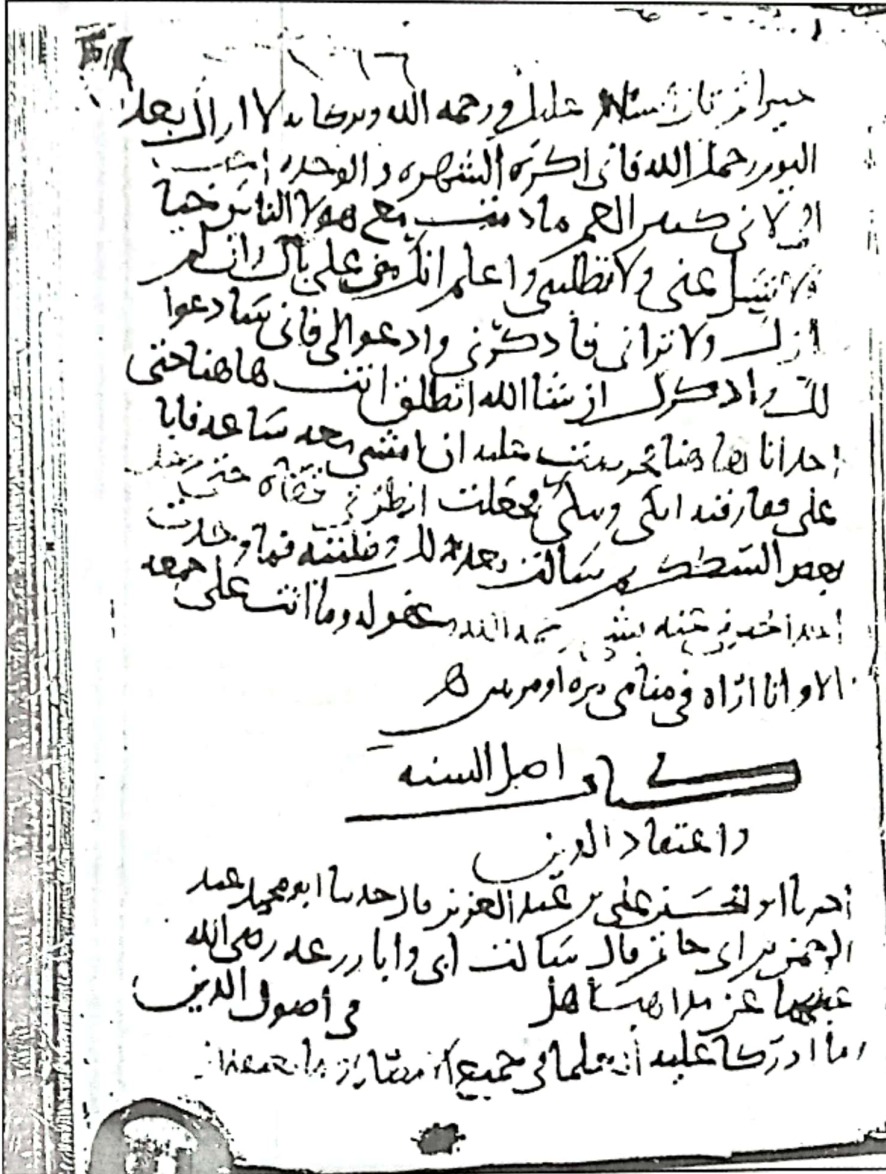 السلام عليك ورحمه الله وبركاته لا اراك بعد
اليوم رحمك الله فاني اكره الشهره والوحده احب
الي لاني كثير الغم ما دمت مع هولا الناس حيا
فلا تسل عني ولا تطلبني واعلم انك مني على بال وان لم
ارك ولا تراني فاذكرني وادعوا لي فاني سادعوا
لك واذكرك ان شا الله انطلق انت هاهنا حتى
اخذ انا هاهنا عليه ان امشي معه ساعه فابا
على ففارقته ابكي ويبكي فجعلت انظر في قفاه حتى دخل
بعض السكك سالت بعد ذلك وطلبته فما وجدت
احدا يخبرني عنه بشي رحمه الله وغفر له وما اتت على جمعه
الا وانا اراه في منامي مره او مرتين ه
كتاب اصل السنه
واعتقاد الدين
اخبرنا ابو الحسن علي بن عبد العزيز قال حدثنا ابو محمد عبد
الرحمن بن ابي حاتم قال سالت ابي وابا زرعه رضي الله
عنهما عن مذاهب اهل في اصول الدين
وما ادركا عليه العلما في جميع الامصار